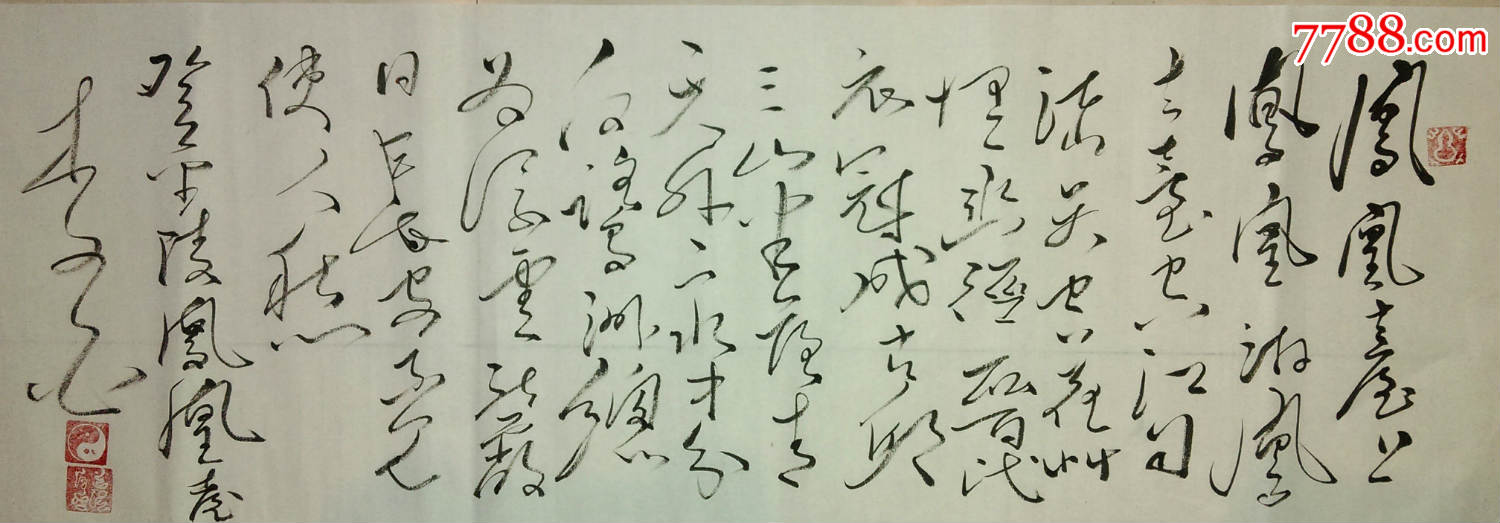 鳳凰臺上
鳳凰游鳳
去臺空江自
流吳宮花草
埋幽徑晉代
衣冠成古邱
三山半落青
天外二水中分
白鷺洲總
為浮雲能蔽
日長安不見
使人愁
登金陵鳳凰臺
7788.com